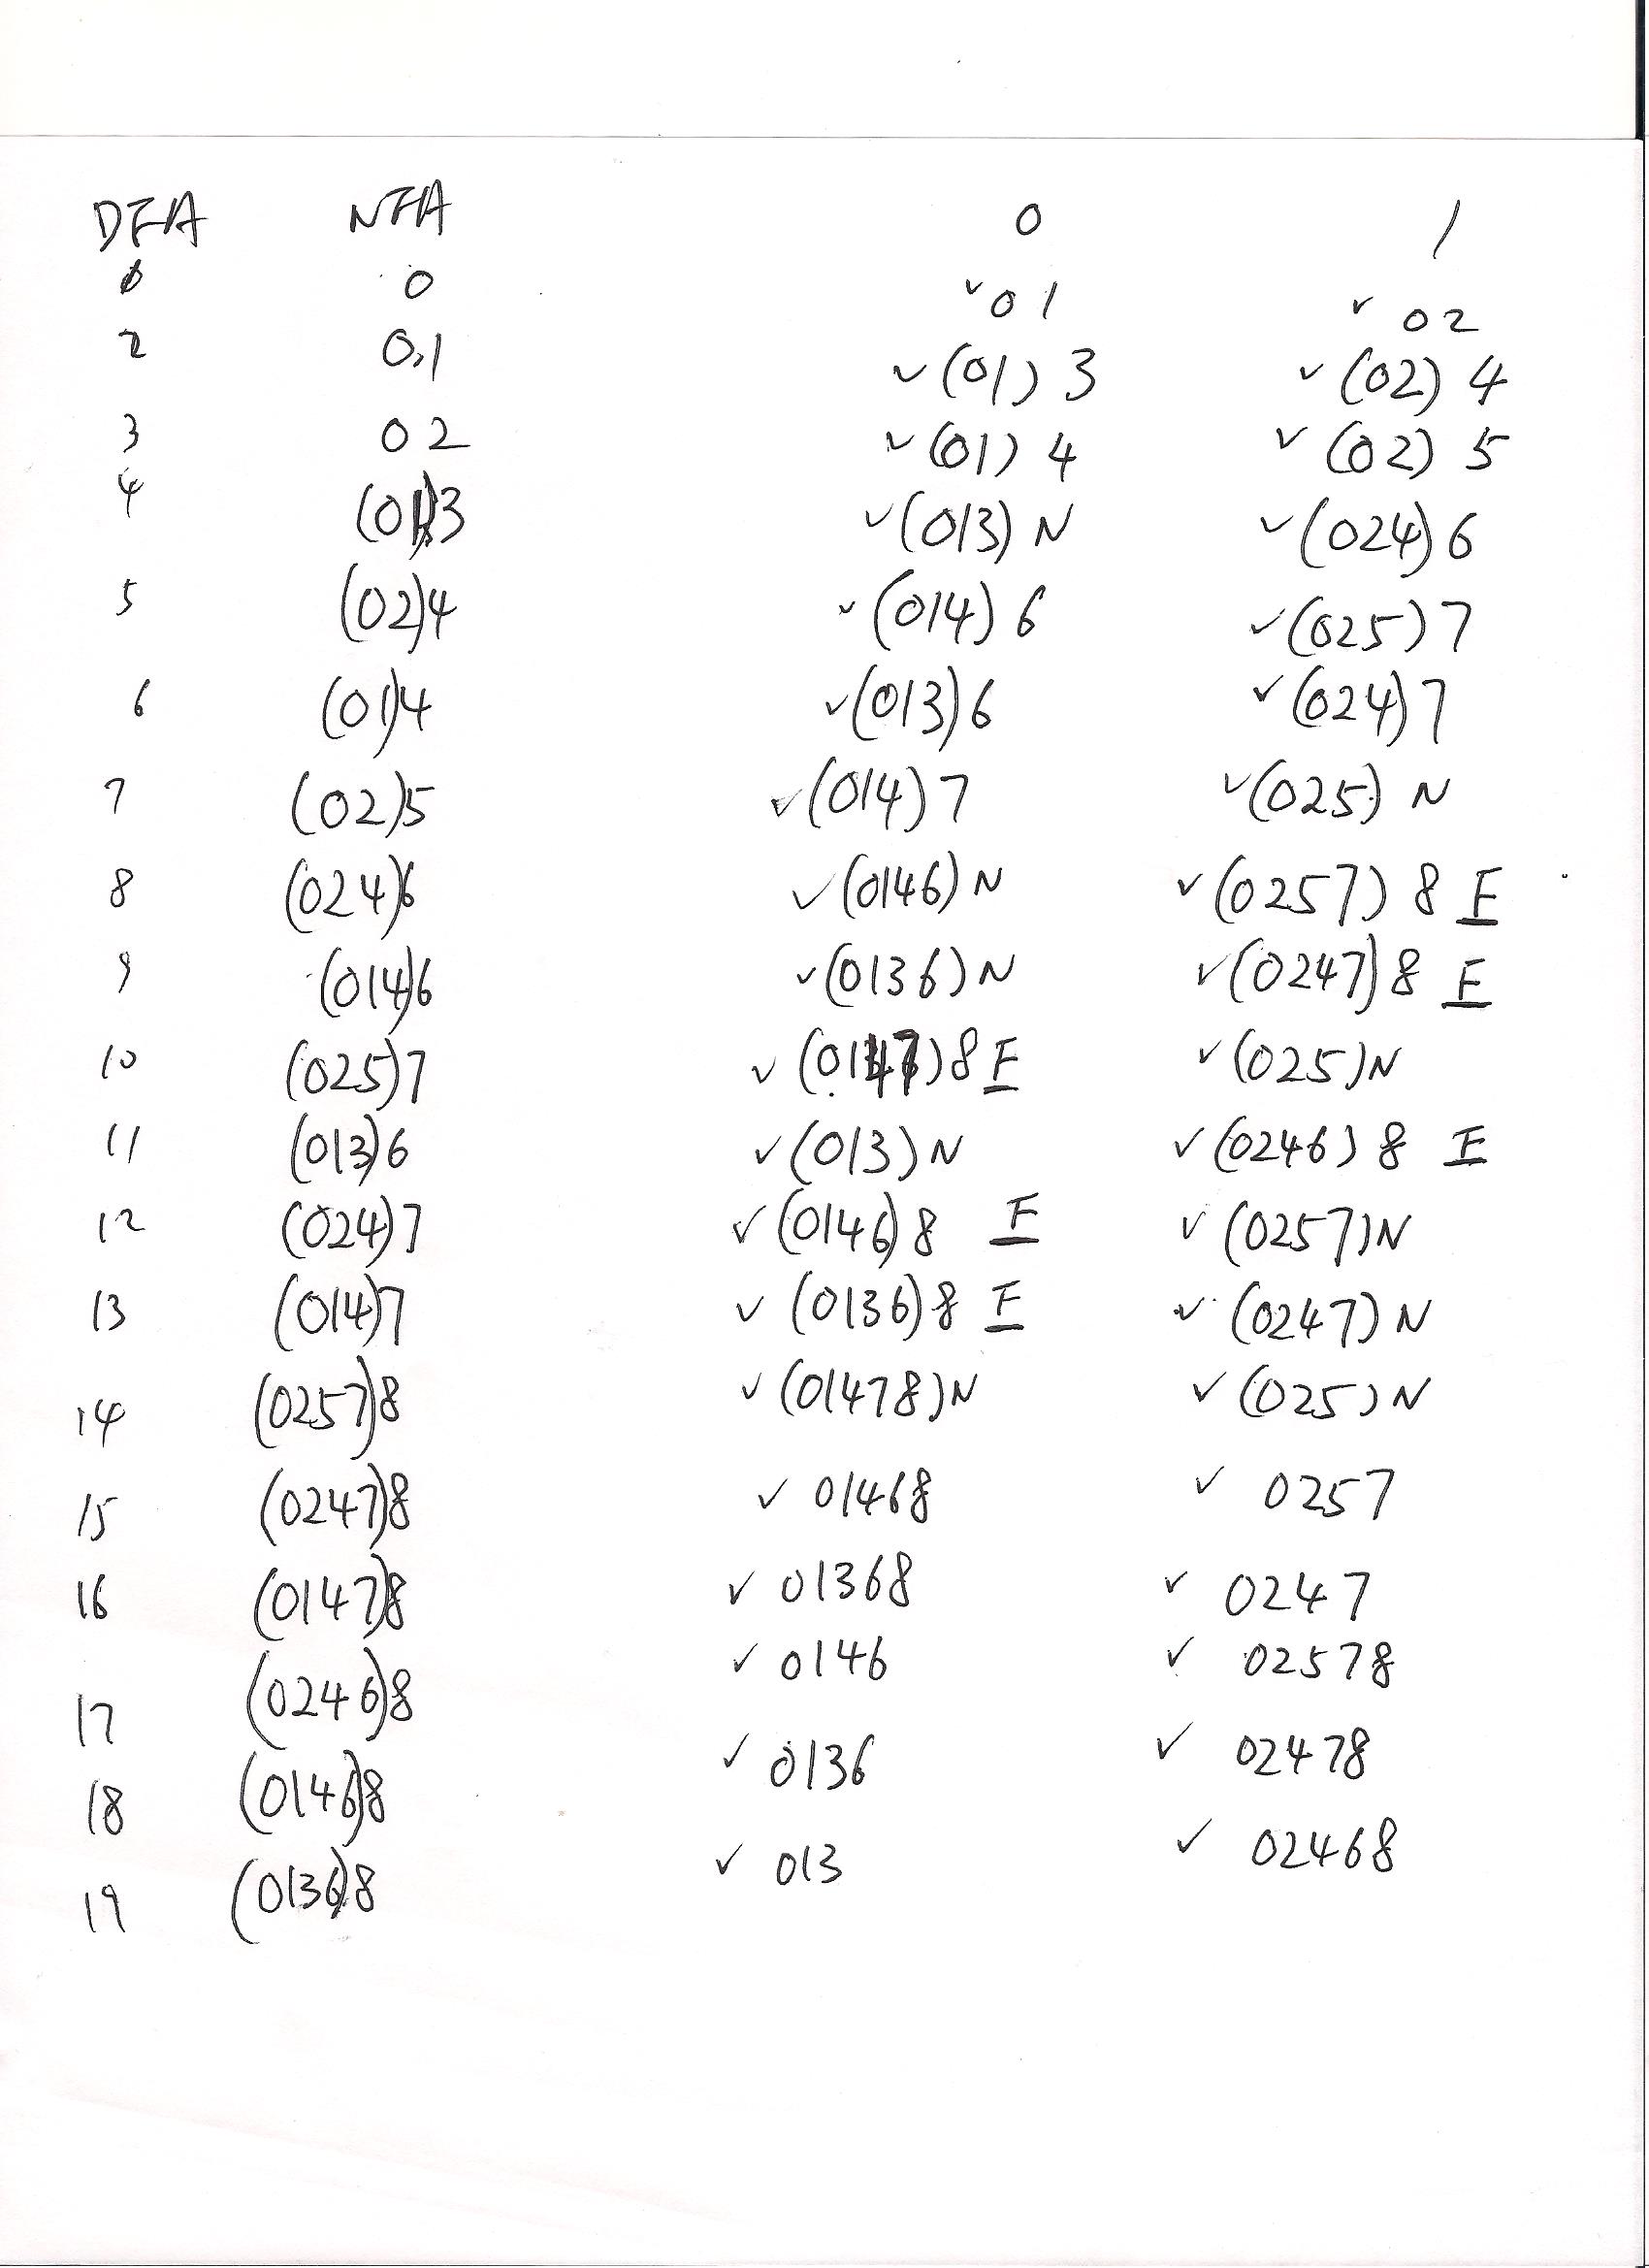 DFA NFA 0 1
0 0 ✓ 01 ✓ 02
2 0,1 ✓ (01) 3 ✓ (02) 4
3 02 ✓ (01) 4 ✓ (02) 5
4 (01)3 ✓ (013) N ✓ (024) 6
5 (02)4 ✓ (014) 6 ✓ (025) 7
6 (01)4 ✓ (013) 6 ✓ (024) 7
7 (02)5 ✓ (014) 7 ✓ (025) N
8 (024)6 ✓ (0146) N ✓ (0257) 8 F
9 (014)6 ✓ (0136) N ✓ (0247) 8 F
10 (025)7 ✓ (0147) 8 F ✓ (025) N
11 (013)6 ✓ (013) N ✓ (0246) 8 F
12 (024)7 ✓ (0146) 8 F ✓ (0257) N
13 (014)7 ✓ (0136) 8 F ✓ (0247) N
14 (0257)8 ✓ (01478) N ✓ (025) N
15 (0247)8 ✓ 01468 ✓ 0257
16 (0147)8 ✓ 01368 ✓ 0247
17 (0246)8 ✓ 0146 ✓ 02578
18 (0146)8 ✓ 0136 ✓ 02478
19 (0136)8 ✓ 013 ✓ 02468